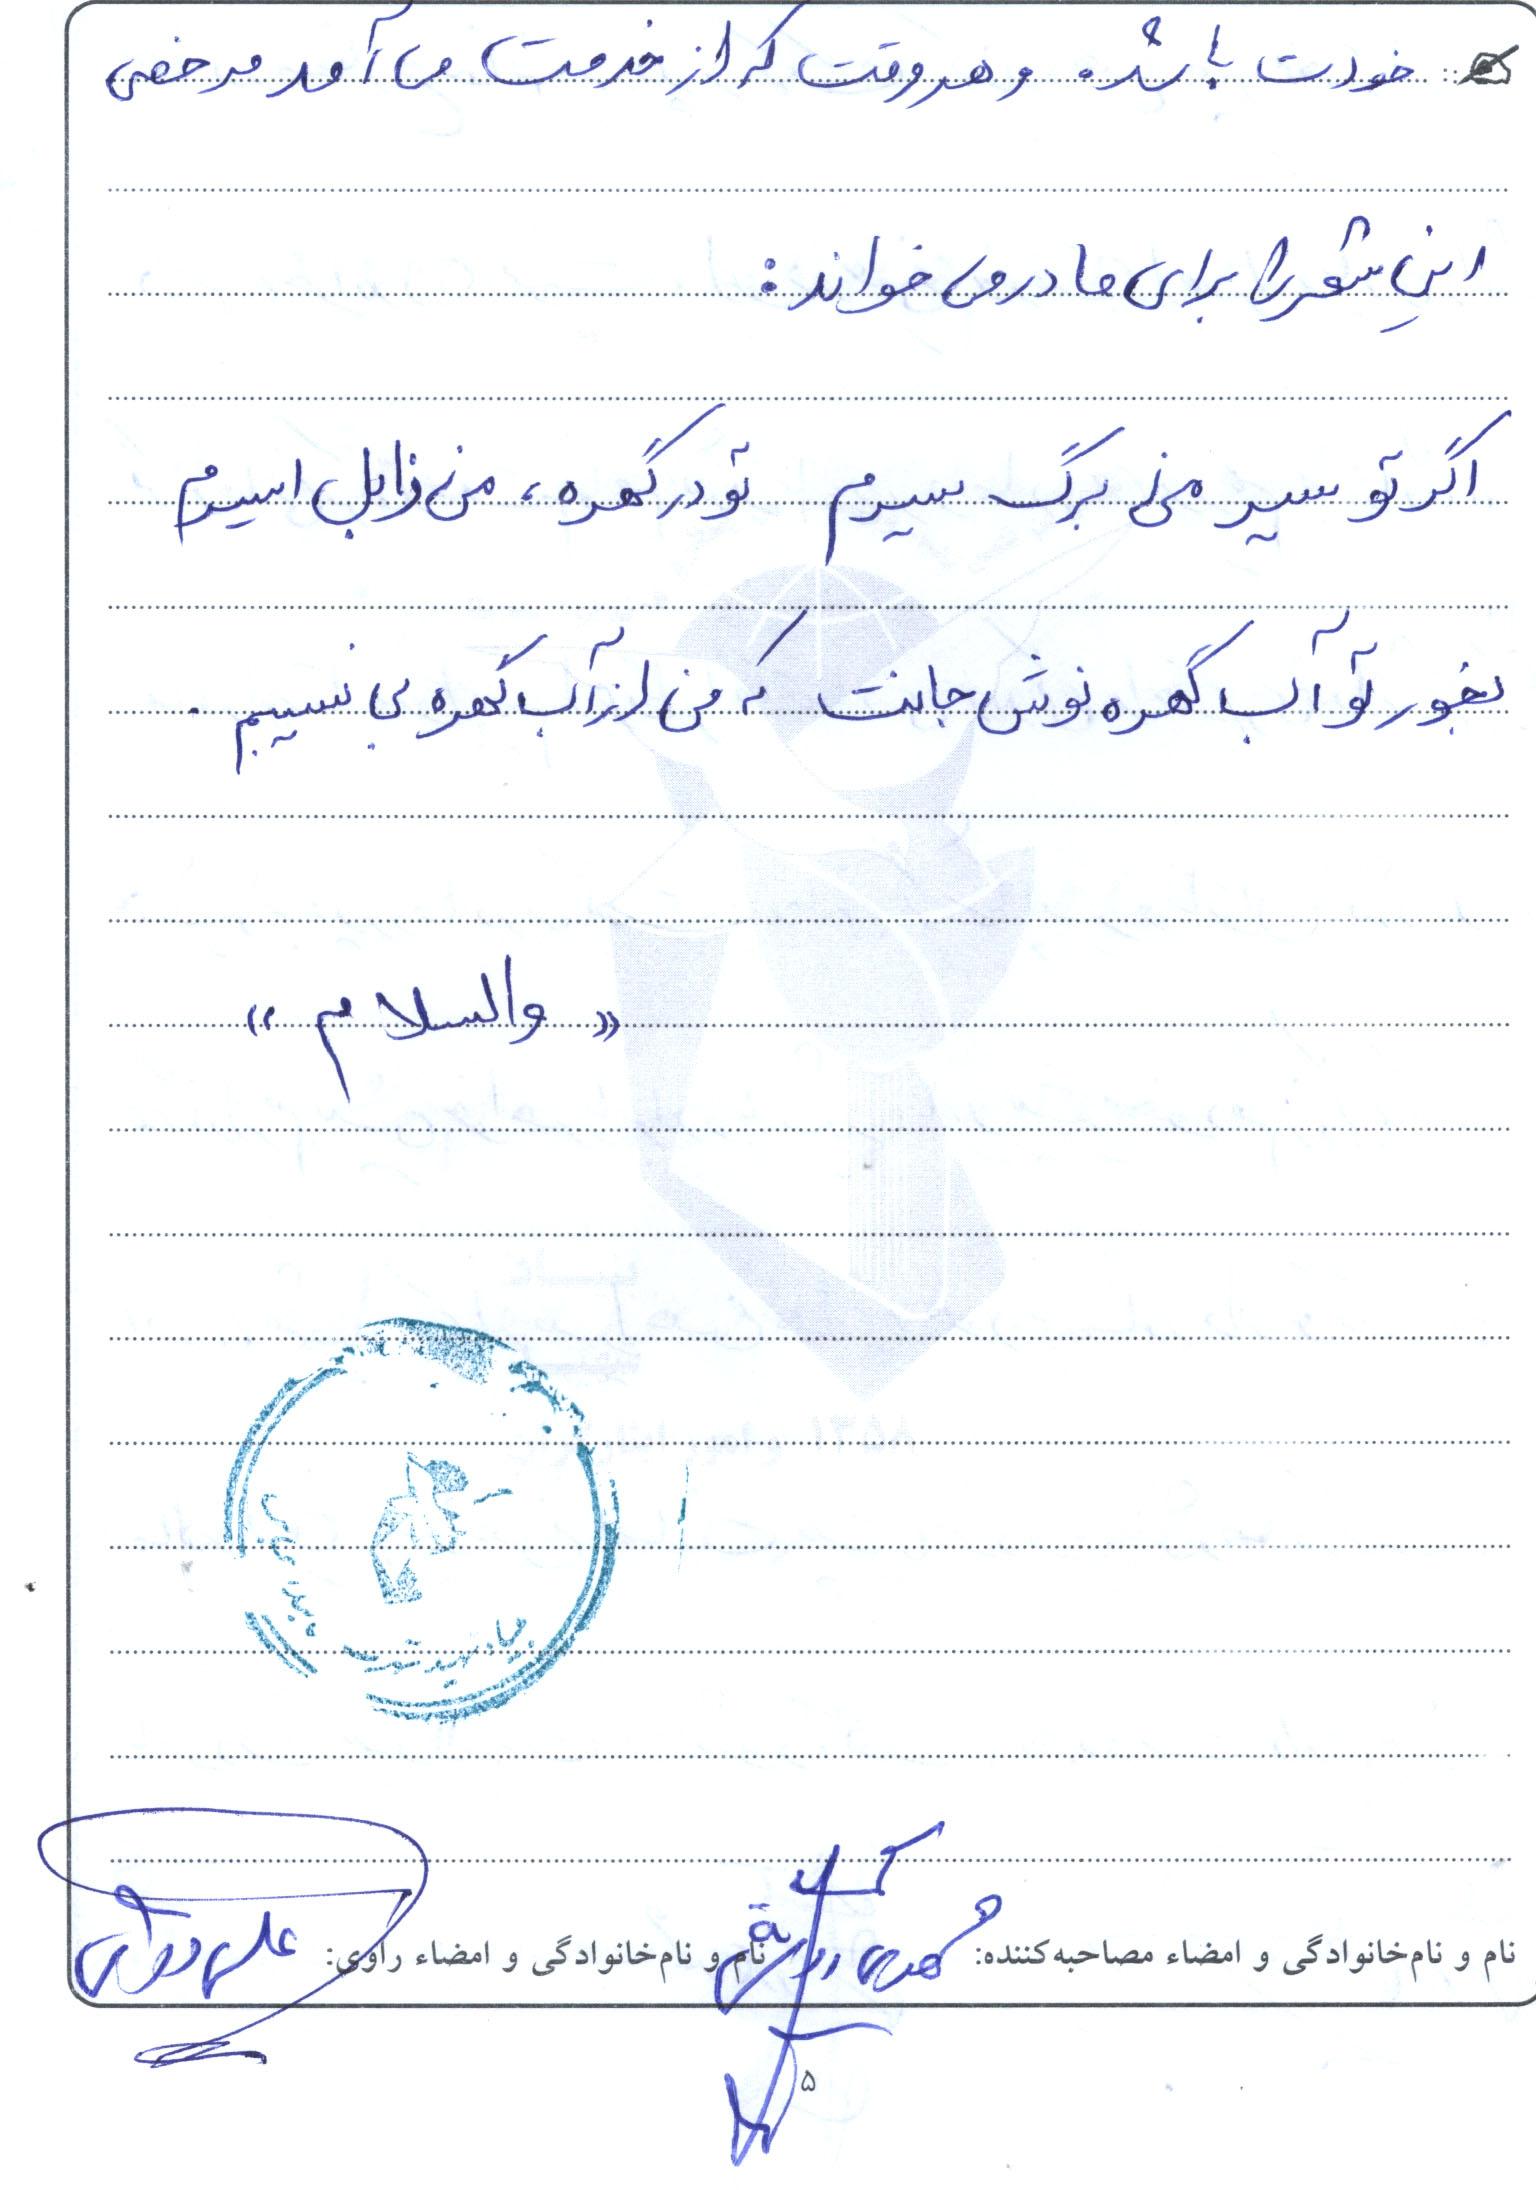 خودت باشد. و هر وقت که از خدمت می آمد مرخصی
این شعر را برای مادر می خواند:
اگر تو سیر منی برگ سیرم تو در گهره، من زابل اسیرم
بخور تو آب گهره نوش جانت که من از آب گهره بی نسیبم.
« والسلام »
نام و نام‌خانوادگی و امضاء مصاحبه‌کننده: نام و نام‌خانوادگی و امضاء راوی: علی
۵